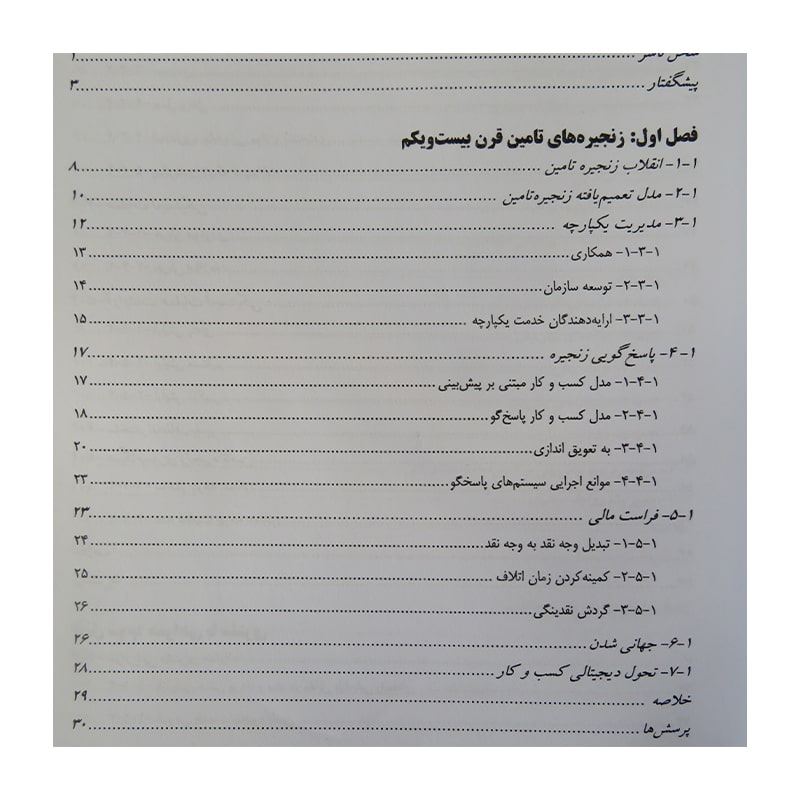 سخن ناشر ........ ۱
پیشگفتار ........ ۳
فصل اول: زنجیره‌های تامین قرن بیست‌ویکم
۱-۱- انقلاب زنجیره تامین ........ ۸
۱-۲- مدل تعمیم‌یافته زنجیره‌تامین ........ ۱۰
۱-۳- مدیریت یکپارچه ........ ۱۲
۱-۳-۱- همکاری ........ ۱۳
۱-۳-۲- توسعه سازمان ........ ۱۴
۱-۳-۳- ارایه‌دهندگان خدمت یکپارچه ........ ۱۵
۱-۴- پاسخ‌گویی زنجیره ........ ۱۷
۱-۴-۱- مدل کسب و کار مبتنی بر پیش‌بینی ........ ۱۷
۱-۴-۲- مدل کسب و کار پاسخ‌گو ........ ۱۸
۱-۴-۳- به تعویق اندازی ........ ۲۰
۱-۴-۴- موانع اجرایی سیستم‌های پاسخگو ........ ۲۳
۱-۵- فراست مالی ........ ۲۳
۱-۵-۱- تبدیل وجه نقد به وجه نقد ........ ۲۴
۱-۵-۲- کمینه‌کردن زمان اتلاف ........ ۲۵
۱-۵-۳- گردش نقدینگی ........ ۲۶
۱-۶- جهانی شدن ........ ۲۶
۱-۷- تحول دیجیتالی کسب و کار ........ ۲۸
خلاصه ........ ۲۹
پرسش‌ها ........ ۳۰